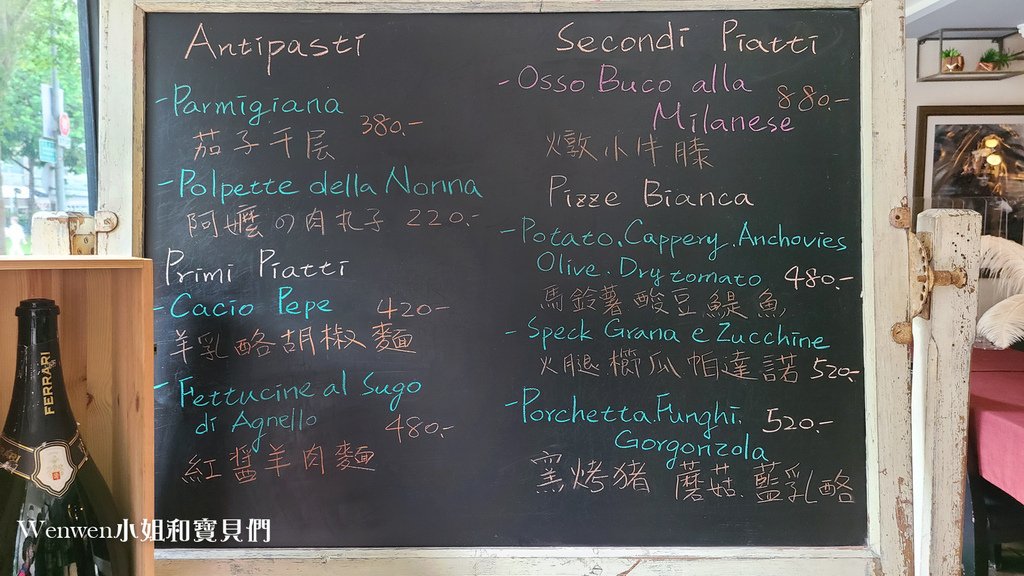 Antipasti
-Parmigiana
茄子千层 380.-
-Polpette della Nonna
阿嬤の肉丸子 220.-
Primi Piatti
-Cacio Pepe 420-
羊乳酪胡椒麵
-Fettucine al Sugo
di Agnello 480.-
紅醬羊肉麵
Secondi Piatti
-Osso Buco alla
Milanese 880.-
燉小牛膝
Pizze Bianca
-Potato.Cappery.Anchovies
Olive.Dry tomato 480.-
馬鈴薯酸豆鯷魚
-Speck Grana e Zucchine
火腿櫛瓜帕達諾 520.-
-Porchetta.Funghi. 520.-
Gorgonzola
窯烤猪 蘑菇.藍乳酪
FERRARI
Wenwen小姐和寶貝們